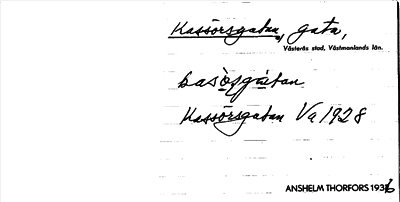 Kassörsgatan, gata,
Västerås stad, Västmanlands län.
Kassörsgatan Va 1928
ANSHELM THORFORS 1936